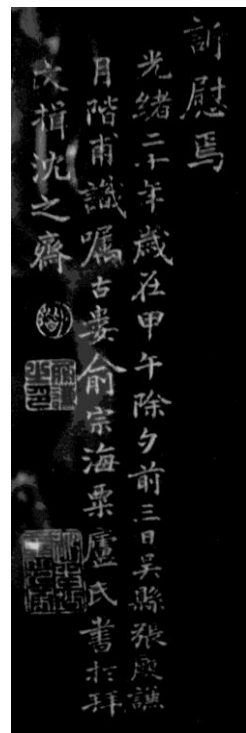 訢慰焉
光緒二十年歲在甲午除夕前三日吳縣張殿謙
月階甫識囑古婁俞宗海粟廬氏書於拜
文揖沈之齋